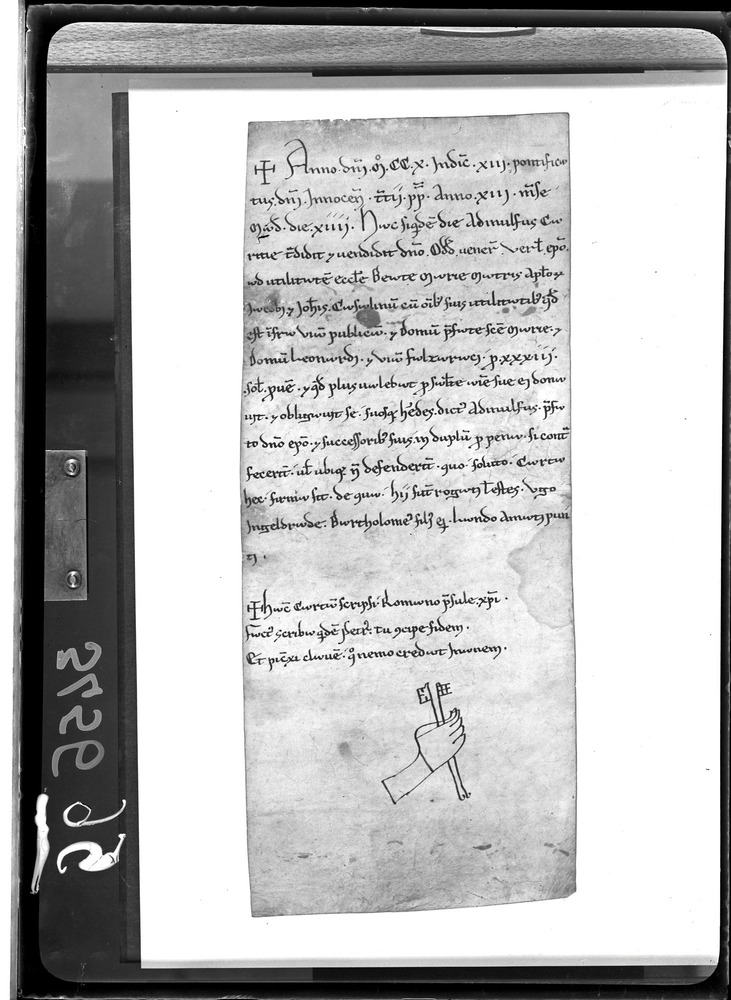 ✝ Anno. dnj. M̊. CC. X. Indic̄. XIII. pontifica
tus. dnj. Innocenj. t̄tij. pp̄. Anno. XIII. m̄se
die. XIIII. Hac siqdē die Adinulfus Ca
ritie t̄didit ⁊ uendidit dn̄o. Odd. uener̄. Verl̄. ep̄o.
ad utilitatē eccl̄e Beate Marie Matris Ap̄lo⁊
Jacobi ⁊ Joh̄is. Casalinū cū oīb; suis utilitatib; qd̄
est īfra Viā publicā. ⁊ Domū p̄fate sc̄e Marie. ⁊
Domū Leonardi. ⁊ viā. p. XXXIII.
sol̄. p̱uē. ⁊ qd̄ plus ualebat p salt̄e aīe sue ei dona
uit. ⁊ obligauit se. suosq; h̄edes. dict᾿ Adinulfus. p̄fa
to dn̄o ep̄o. ⁊ successorib; suis. in duplū p pena. si cont̄
fecerit̄. ul̄ ubiq; n̄ defenderit̄. quo. soluto. Carta
hec. firma sit. de qua. hij sūt rogati testes. Vgo
Ingeldrade. Bartholome᾿ fili᾿ ej. Lando Amati puri
tj.
✝ hāc Cartā scripsi Romano p̄sule. xp̄i.
Sūct᾿ scriba qdē Petr᾿. tu ꝯcipe fidem.
Et pīcxi clauē. q̊ nemo credat Inanem.
5456
56